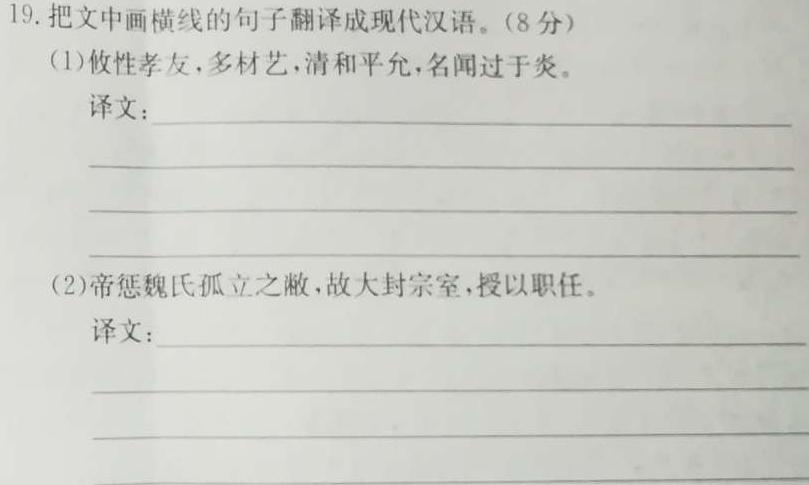 19.把文中画横线的句子翻译成现代汉语。(8分)
(1)攸性孝友,多材艺,清和平允,名闻过于炎。
译文:
(2)帝惩魏氏孤立之敝,故大封宗室,授以职任。
译文: